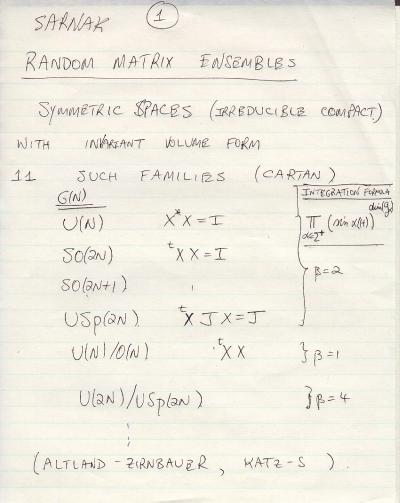 SARNAK
①
RANDOM MATRIX ENSEMBLES
SYMMETRIC SPACES (IRREDUCIBLE COMPACT)
WITH INVARIANT VOLUME FORM
11 SUCH FAMILIES (CARTAN)
G(N)
INTEGRATION FORMULA
U(N) X*X = I
∏_{α∈Σ⁺} (sin α(H))^{dim(g_α)}
SO(2N) ᵗX X = I
SO(2N+1) '
} β=2
USp(2N) ᵗX J X = J
U(N)/O(N) ᵗX X } β=1
U(2N)/USp(2N) } β=4
⋮
(ALTLAND-ZIRNBAUER, KATZ-S).